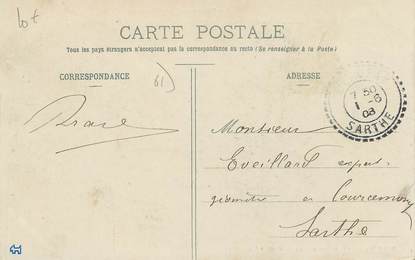 CARTE POSTALE
Tous les pays étrangers n'acceptent pas la correspondance au recto (Se renseigner à la Poste)
CORRESPONDANCE
ADRESSE
61)
7 50
1 -6
08
SARTHE
Monsieur
Eveillard expert
géomètre à Courcemont
Sarthe